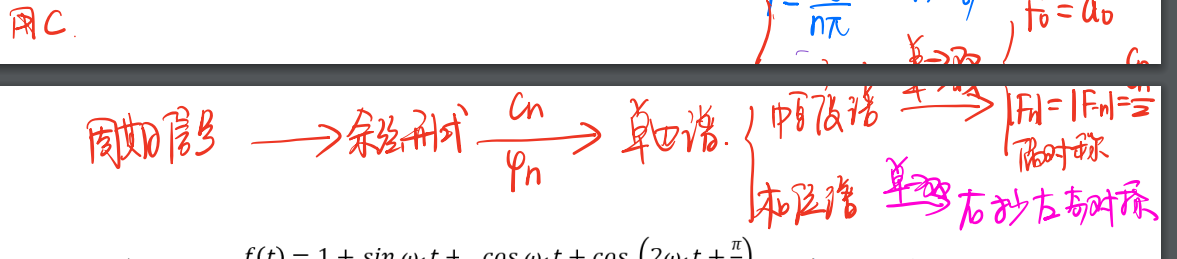 用C.
= nπ
F₀ = a₀
单→双
周期信号 → 余弦形式 Cn φn → 单边谱.
幅度谱 单→双 |Fn|=|F-n|=Cn/2
偶对称
相位谱 单→双 右抄左奇对称
f(t) = 1 + sin ω₁t + cos ω₁t + cos (2ω₁t + π